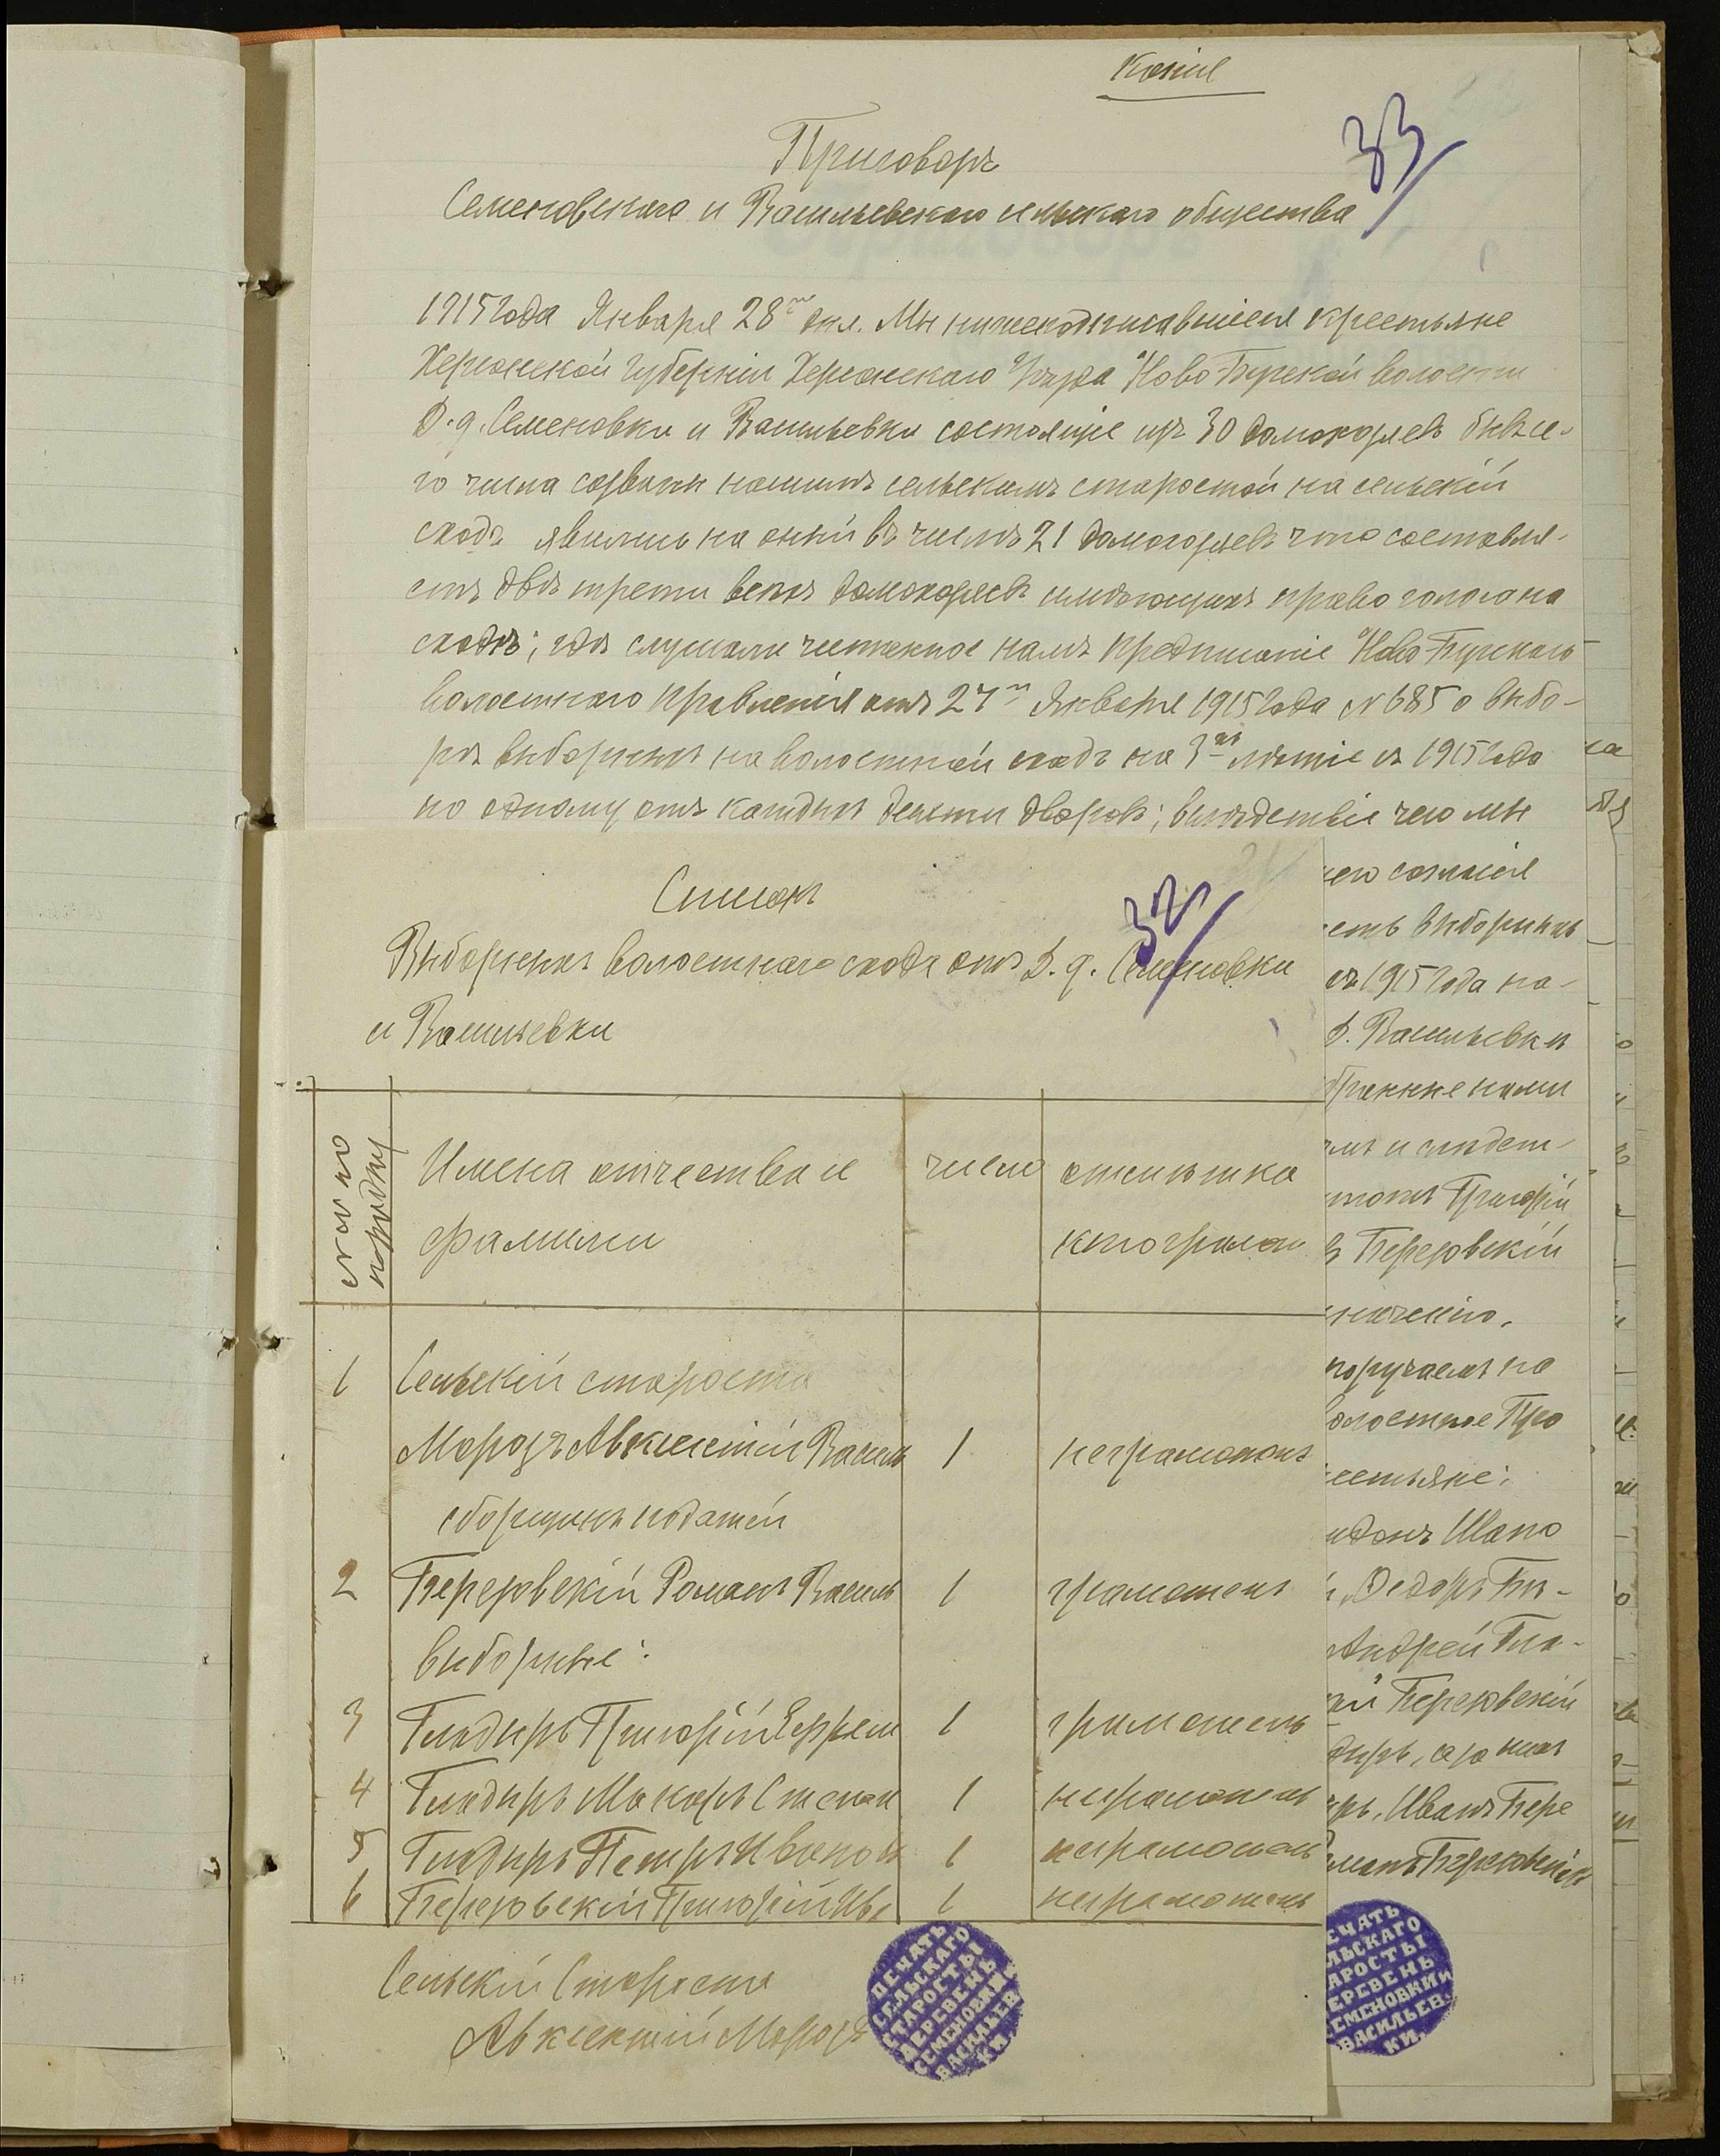 Копія
33
Приговоръ
Семеновскаго и Васильевскаго сельскаго общества
1915 года Января 28го дня. Мы нижеподписавшіеся крестьяне
Херсонской Губерніи Херсонскаго Уѣзда Ново Бугской волости
д. д. Семеновки и Васильевки состоящіе изъ 30 домохозяевъ бывъ се-
го числа созваны нашимъ сельскимъ старостой на сельскій
сходъ явились на оный въ числѣ 21 домохозяевъ что составля-
етъ двѣ трети всѣхъ домохозяевъ имѣющихъ право голоса на
сходѣ; гдѣ слушали читанное намъ предписаніе Ново Бугскаго
волостного правленія отъ 27го Января 1915 года № 685 о выбо-
рѣ выборныхъ на волостной сходъ на 3хъ лѣтіе съ 1915 года
по одному отъ каждыхъ десяти дворовъ; вслѣдствіе чего мы
его согласія
есть выборныхъ
съ 1915 года на-
д. Васильевки
бранные нами
и слѣдст-
Григорій
Березовскій
поручаемъ на
олостное Пра
рестьяне:
идонъ Шапо
й, Федоръ Бы-
Андрей Гла-
ій Березовскій
дырь, а за них
рь, Иванъ Бере
манъ Березовскій
ЕЧАТЬ
ЛЬСКАГО
АРОСТЫ
ЕРЕВЕНЬ
ЕМЕНОВКИ и
ВАСИЛЬЕВ
КИ.
Списокъ
32
Выборныхъ волостнаго схода отъ д. д. Семеновки
и Васильевки
№№ по порядку
Имена отчества и фамиліи
число
отмѣтка кто грамот
1
Сельскій староста
Морозъ Авксентій Василь
1
неграмотенъ
сборщикъ податей
2
Березовскій Романъ Василь
1
грамотенъ
выборные:
3
Гладырь Григорій Ефрем
1
грамотенъ
4
Гладырь Макаръ Степан
1
неграмотенъ
5
Гладырь Петръ Иванов
1
неграмотенъ
6
Березовскій Григорій Ива
1
неграмотенъ
Сельскій Староста
Авксентій Морозъ
ПЕЧАТЬ
СЕЛЬСКАГО
СТАРОСТЫ
ДЕРЕВЕНЬ
СЕМЕНОВКИ и
ВАСИЛЬЕВ
КИ.